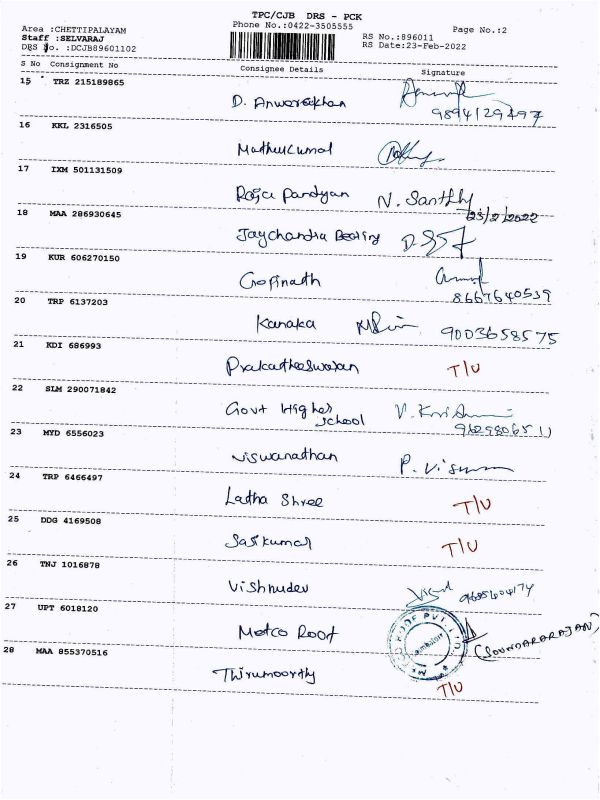 TPC/CJB DRS - PCK
Area :CHETTIPALAYAM Phone No.:0422-3505555 Page No.:2
Staff :SELVARAJ RS No.:896011
DRS No. :DCJB89601102 RS Date:23-Feb-2022
S No Consignment No Consignee Details Signature
15 TRZ 215189865
D. Anwarakhan 9894129497
16 KKL 2316505
Muthukumar
17 IXM 501131509
Raja Pandyan N. Santhy
23/2/2022
18 MAA 286930645
Jaychandra
19 KUR 606270150
Gopinath 8667640539
20 TRP 6137203
Kanaka 9003658575
21 KDI 686993
Prakatheeswaran T/U
22 SLM 290071842
Govt Higher
School 9629806511
23 MYD 6556023
Viswanathan P.
24 TRP 6466497
Latha Shree T/U
25 DDG 4169508
Sasikumar T/U
26 TNJ 1016878
Vishnudev
27 UPT 6018120
Metco Roof (SOUNDARARAJAN)
28 MAA 855370516
Thirumoorthy T/U